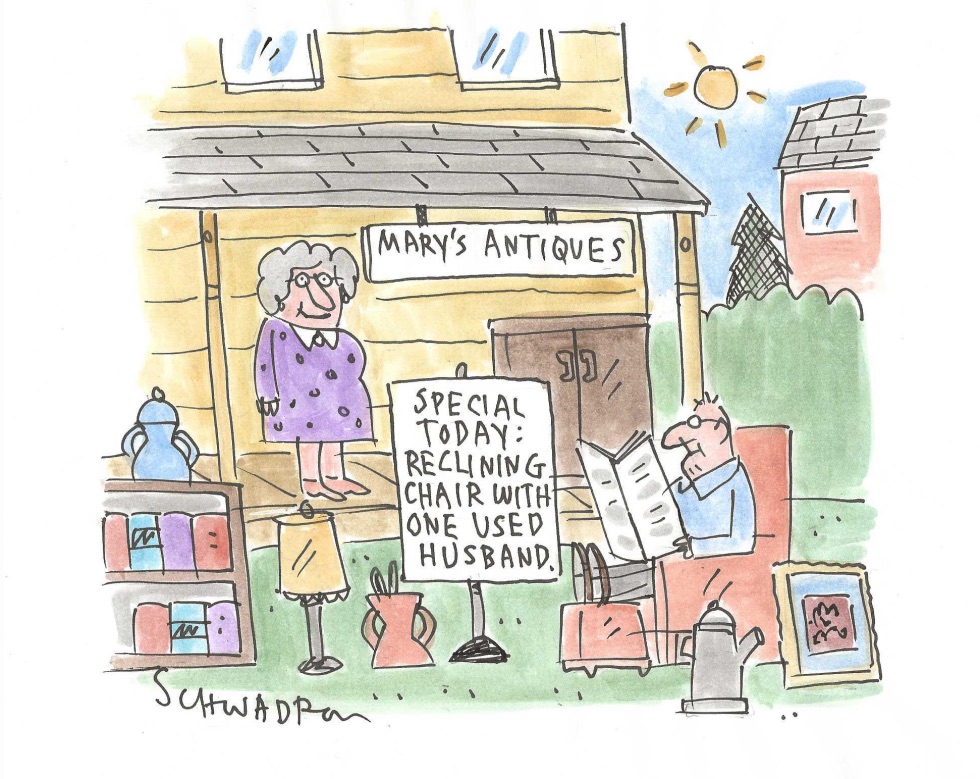 MARY'S ANTIQUES
SPECIAL
TODAY:
RECLINING
CHAIR WITH
ONE USED
HUSBAND.
SCHWADRON